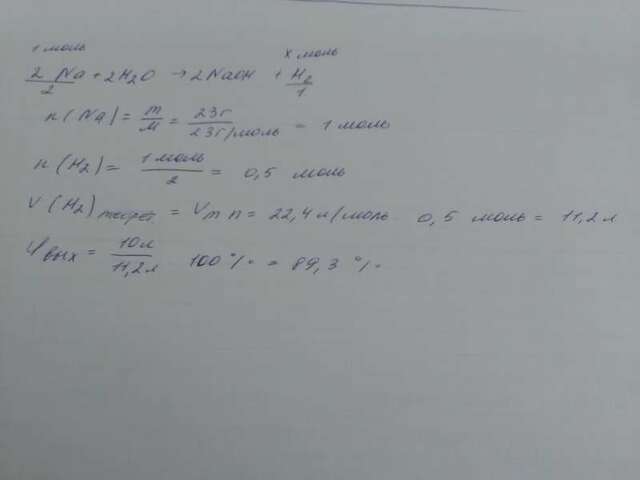 1 моль x моль
2 Na + 2H2O → 2NaOH + H2
2 1
n(Na) = m/M = 23г/23г/моль = 1 моль
n(H2) = 1 моль/2 = 0,5 моль
V(H2)теорет = Vm n = 22,4 л/моль · 0,5 моль = 11,2 л
φвых = 10л/11,2л 100 % = 89,3 %